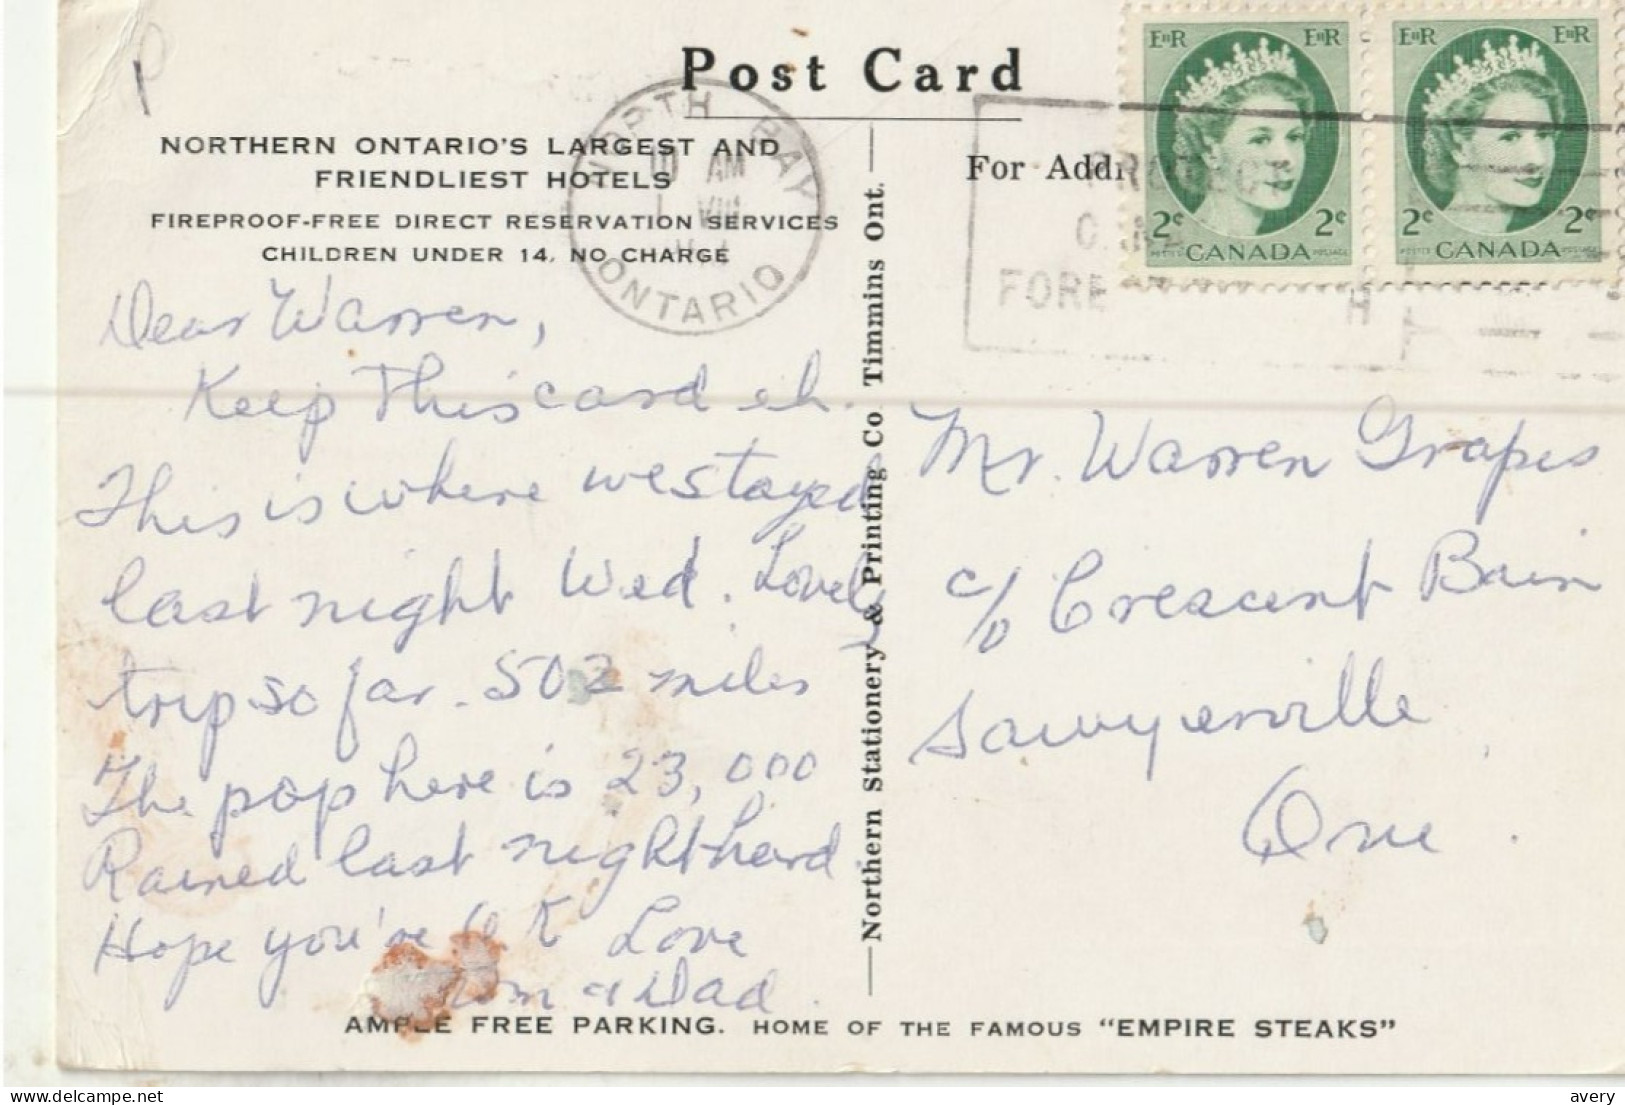 Post Card
NORTHERN ONTARIO'S LARGEST AND
FRIENDLIEST HOTELS
FIREPROOF-FREE DIRECT RESERVATION SERVICES
CHILDREN UNDER 14, NO CHARGE
NORTH BAY
10 AM
1 VIII
ONTARIO
For Addr
PROTECT
FORE H
EIIR EIIR
2¢ 2¢
POSTES CANADA POSTAGE
EIIR EIIR
2¢ 2¢
POSTES CANADA POSTAGE
Dear Warren,
Keep This card eh.
This is where we stayed
last night Wed. Lovely
trip so far. 502 miles
The pop here is 23,000
Rained last night hard
Hope you're O K Love
Mom & Dad.
Northern Stationery & Printing Co Timmins Ont.
Mr. Warren Grapes
c/o Crescent Bain
Sawyerville
Que.
AMPLE FREE PARKING. HOME OF THE FAMOUS "EMPIRE STEAKS"
www.delcampe.net
avery